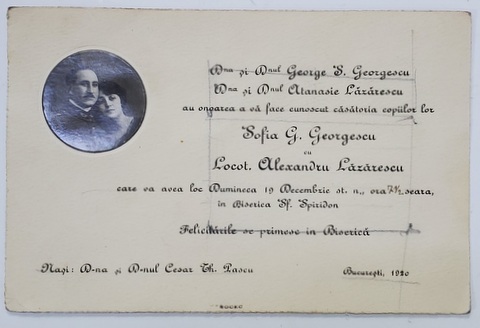 D-na și D-nul George S. Georgescu
D-na și D-nul Atanasie Lăzărescu
au onoarea a vă face cunoscut căsătoria copiilor lor
Sofia G. Georgescu
cu
Locot. Alexandru Lăzărescu
care va avea loc Dumineca 19 Decembrie st. n., ora 7½ seara,
în Biserica Sf. Spiridon
Felicitările se primesc în Biserică
Nași: D-na și D-nul Cesar Th. Pascu
București, 1920
SOCEC